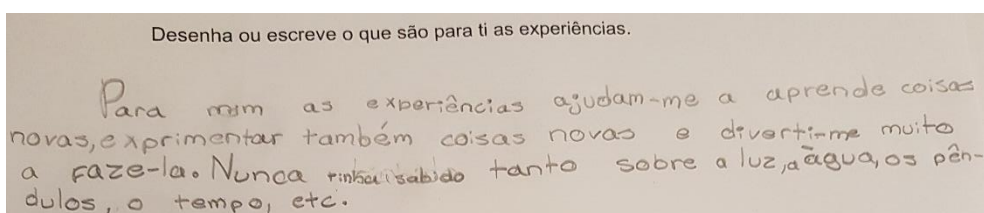 Desenha ou escreve o que são para ti as experiências.
Para mim as experiências ajudam-me a aprende coisas
novas, exprimentar também coisas novas e divertir-me muito
a faze-la. Nunca tinha sabido tanto sobre a luz, a água, os pên-
dulos, o tempo, etc.